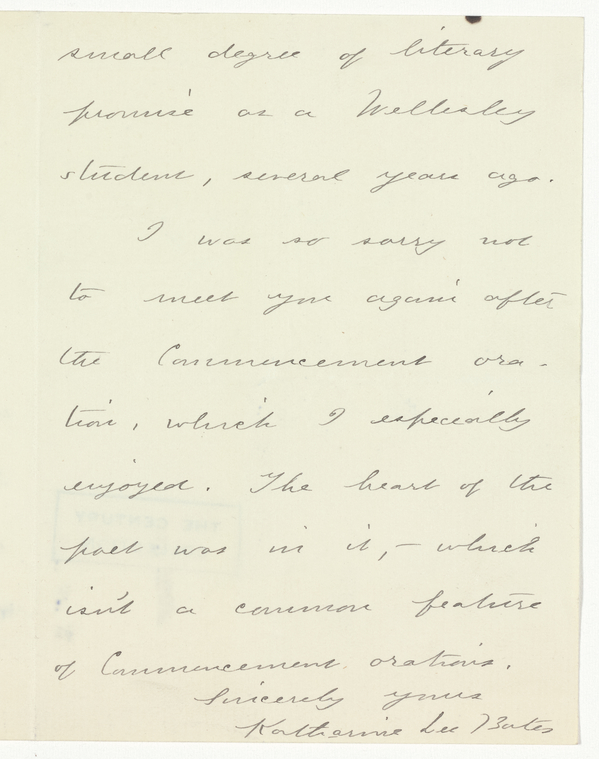 small degree of literary
promise as a Wellesley
student, several years ago.
I was so sorry not
to meet you again after
the Commencement ora-
tion, which I especially
enjoyed. The heart of the
poet was in it, – which
isn't a common feature
of Commencement orations.
Sincerely yours
Katharine Lee Bates
THE CENTURY